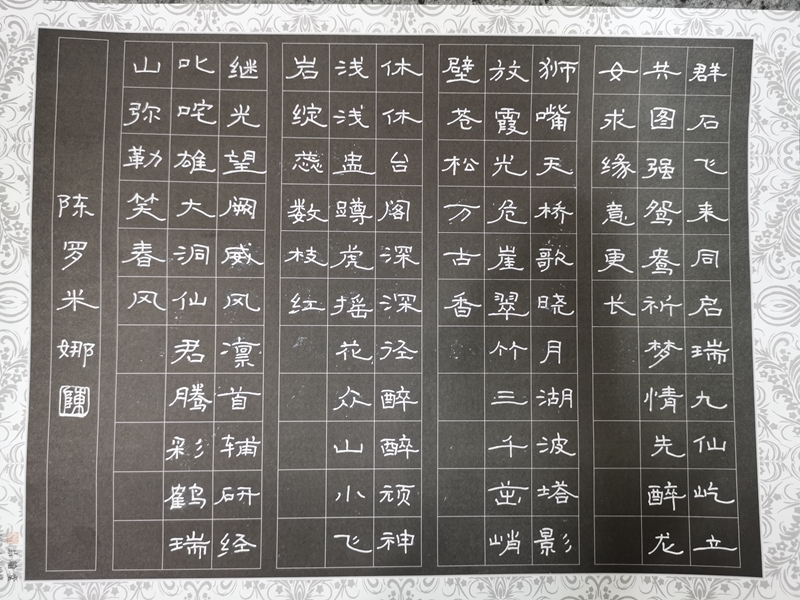 群石飞来同启瑞九仙屹立
共图强鸳鸯祈梦情先醉龙
女求缘意更长
狮嘴天桥歌晓月湖波塔影
放霞光危崖翠竹三千峦峭
壁苍松万古香
休休台阁深深径醉醉顽神
浅浅盅蹲虎摇花众山小飞
岩绽蕊数枝红
继光望阙威风凛首辅研经
叱咤雄大洞仙君腾彩鹤瑞
山弥勒笑春风
陈罗米娜
陳